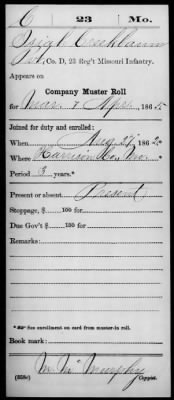 C 23 Mo.
Crickbaum
Pvt, Co. D, 23 Reg't Missouri Infantry.
Appears on
Company Muster Roll
for Mar. & Apr., 1865
Joined for duty and enrolled:
When Aug 27, 1862
Where Harrison Co. Mo.
Period 3 years.*
Present or absent Present
Stoppage, $ 100 for
Due Gov't $ 100 for
Remarks:
* See enrollment on card from muster-in roll.
Book mark:
Murphy
(358c) Copyist.